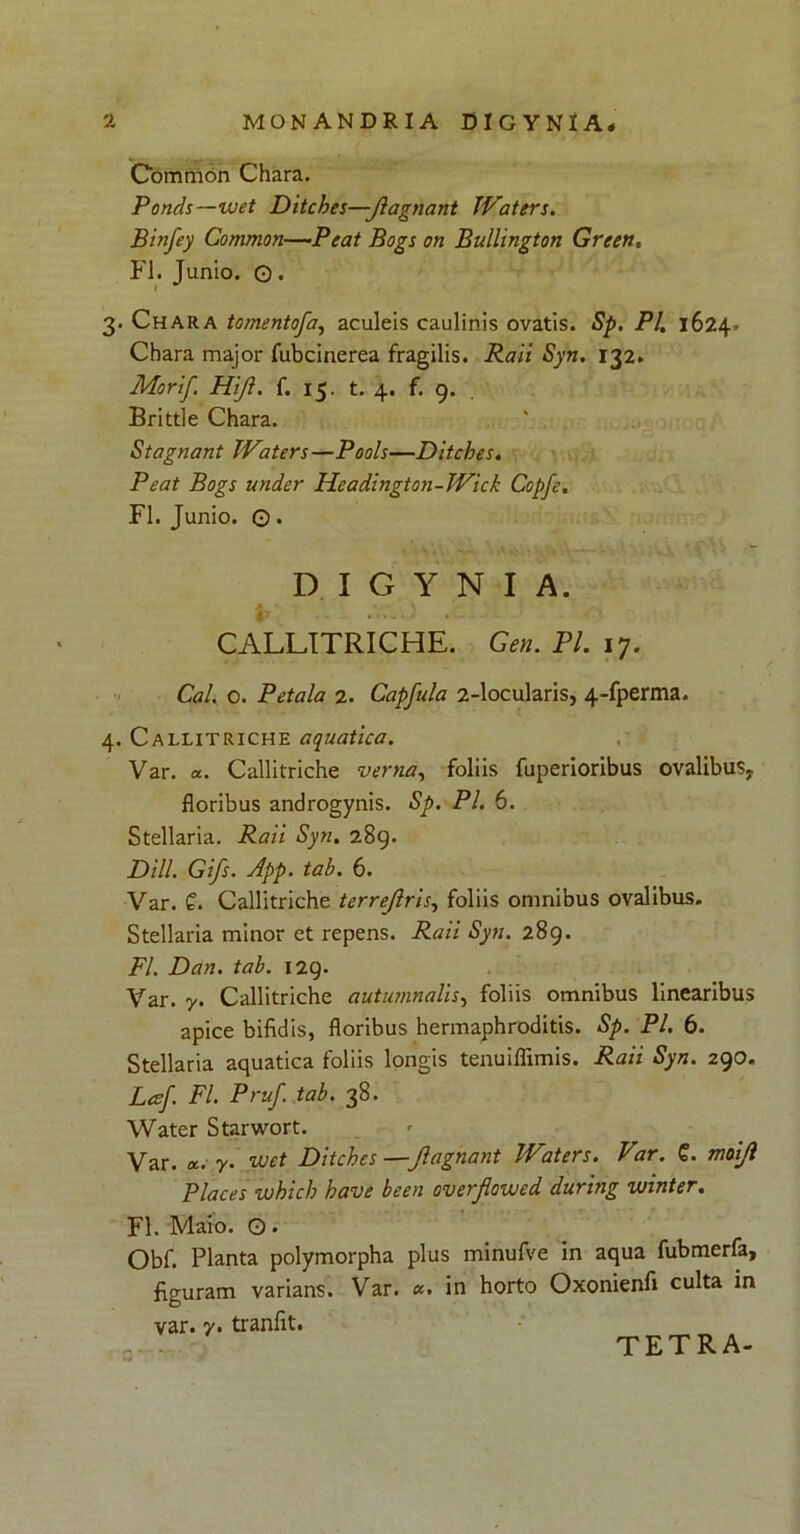 2 MONANDRIA DIGYNIA.
Common Chara.
Ponds—wet Ditches—ſtagnant Waters.
Binſey Common—Peat Bogs on Bullington Green.
Fl. Junio. ʘ.
3. CHARA tomentoſa, aculeis caulinis ovatis. Sp. Pl. 1624.
Chara major ſubcinerea fragilis. Raii Syn. 132.
Moriſ. Hiſt. ſ. 15. t. 4. f. 9.
Brittle Chara.
Stagnant Waters—Pools—Ditches.
Peat Bogs under Headington-Wick Copſe.
Fl. Junio. ʘ.
DIGYNIA.
CALLITRICHE. Gen. Pl. 17.
Cal. 0. Petala 2. Capſula 2-locularis, 4-ſperma.
4. CALLITRICHE aquatica.
Var. α. Callitriche verna, foliis ſuperioribus ovalibus,
floribus androgynis. Sp. Pl. 6.
Stellaria. Raii Syn. 289.
Dill. Giſs. App. tab. 6.
Var. ϐ. Callitriche terreſtris, foliis omnibus ovalibus.
Stellaria minor et repens. Raii Syn. 289.
Fl. Dan. tab. 129.
Var. γ. Callitriche autumnalis, foliis omnibus linearibus
apice bifidis, floribus hermaphroditis. Sp. Pl. 6.
Stellaria aquatica foliis longis tenuiſſimis. Raii Syn. 290.
Lœſ. Fl. Pruſ. tab. 38.
Water Starwort.
Var. α. γ. wet Ditches—ſtagnant Waters. Var. ϐ. moiſt
Places which have been overflowed during winter.
Fl. Maio. ʘ.
Obſ. Planta polymorpha plus minuſve in aqua ſubmerſa,
figuram varians. Var. α. in horto Oxonienſi culta in
var. γ. tranſit.
TETRA-